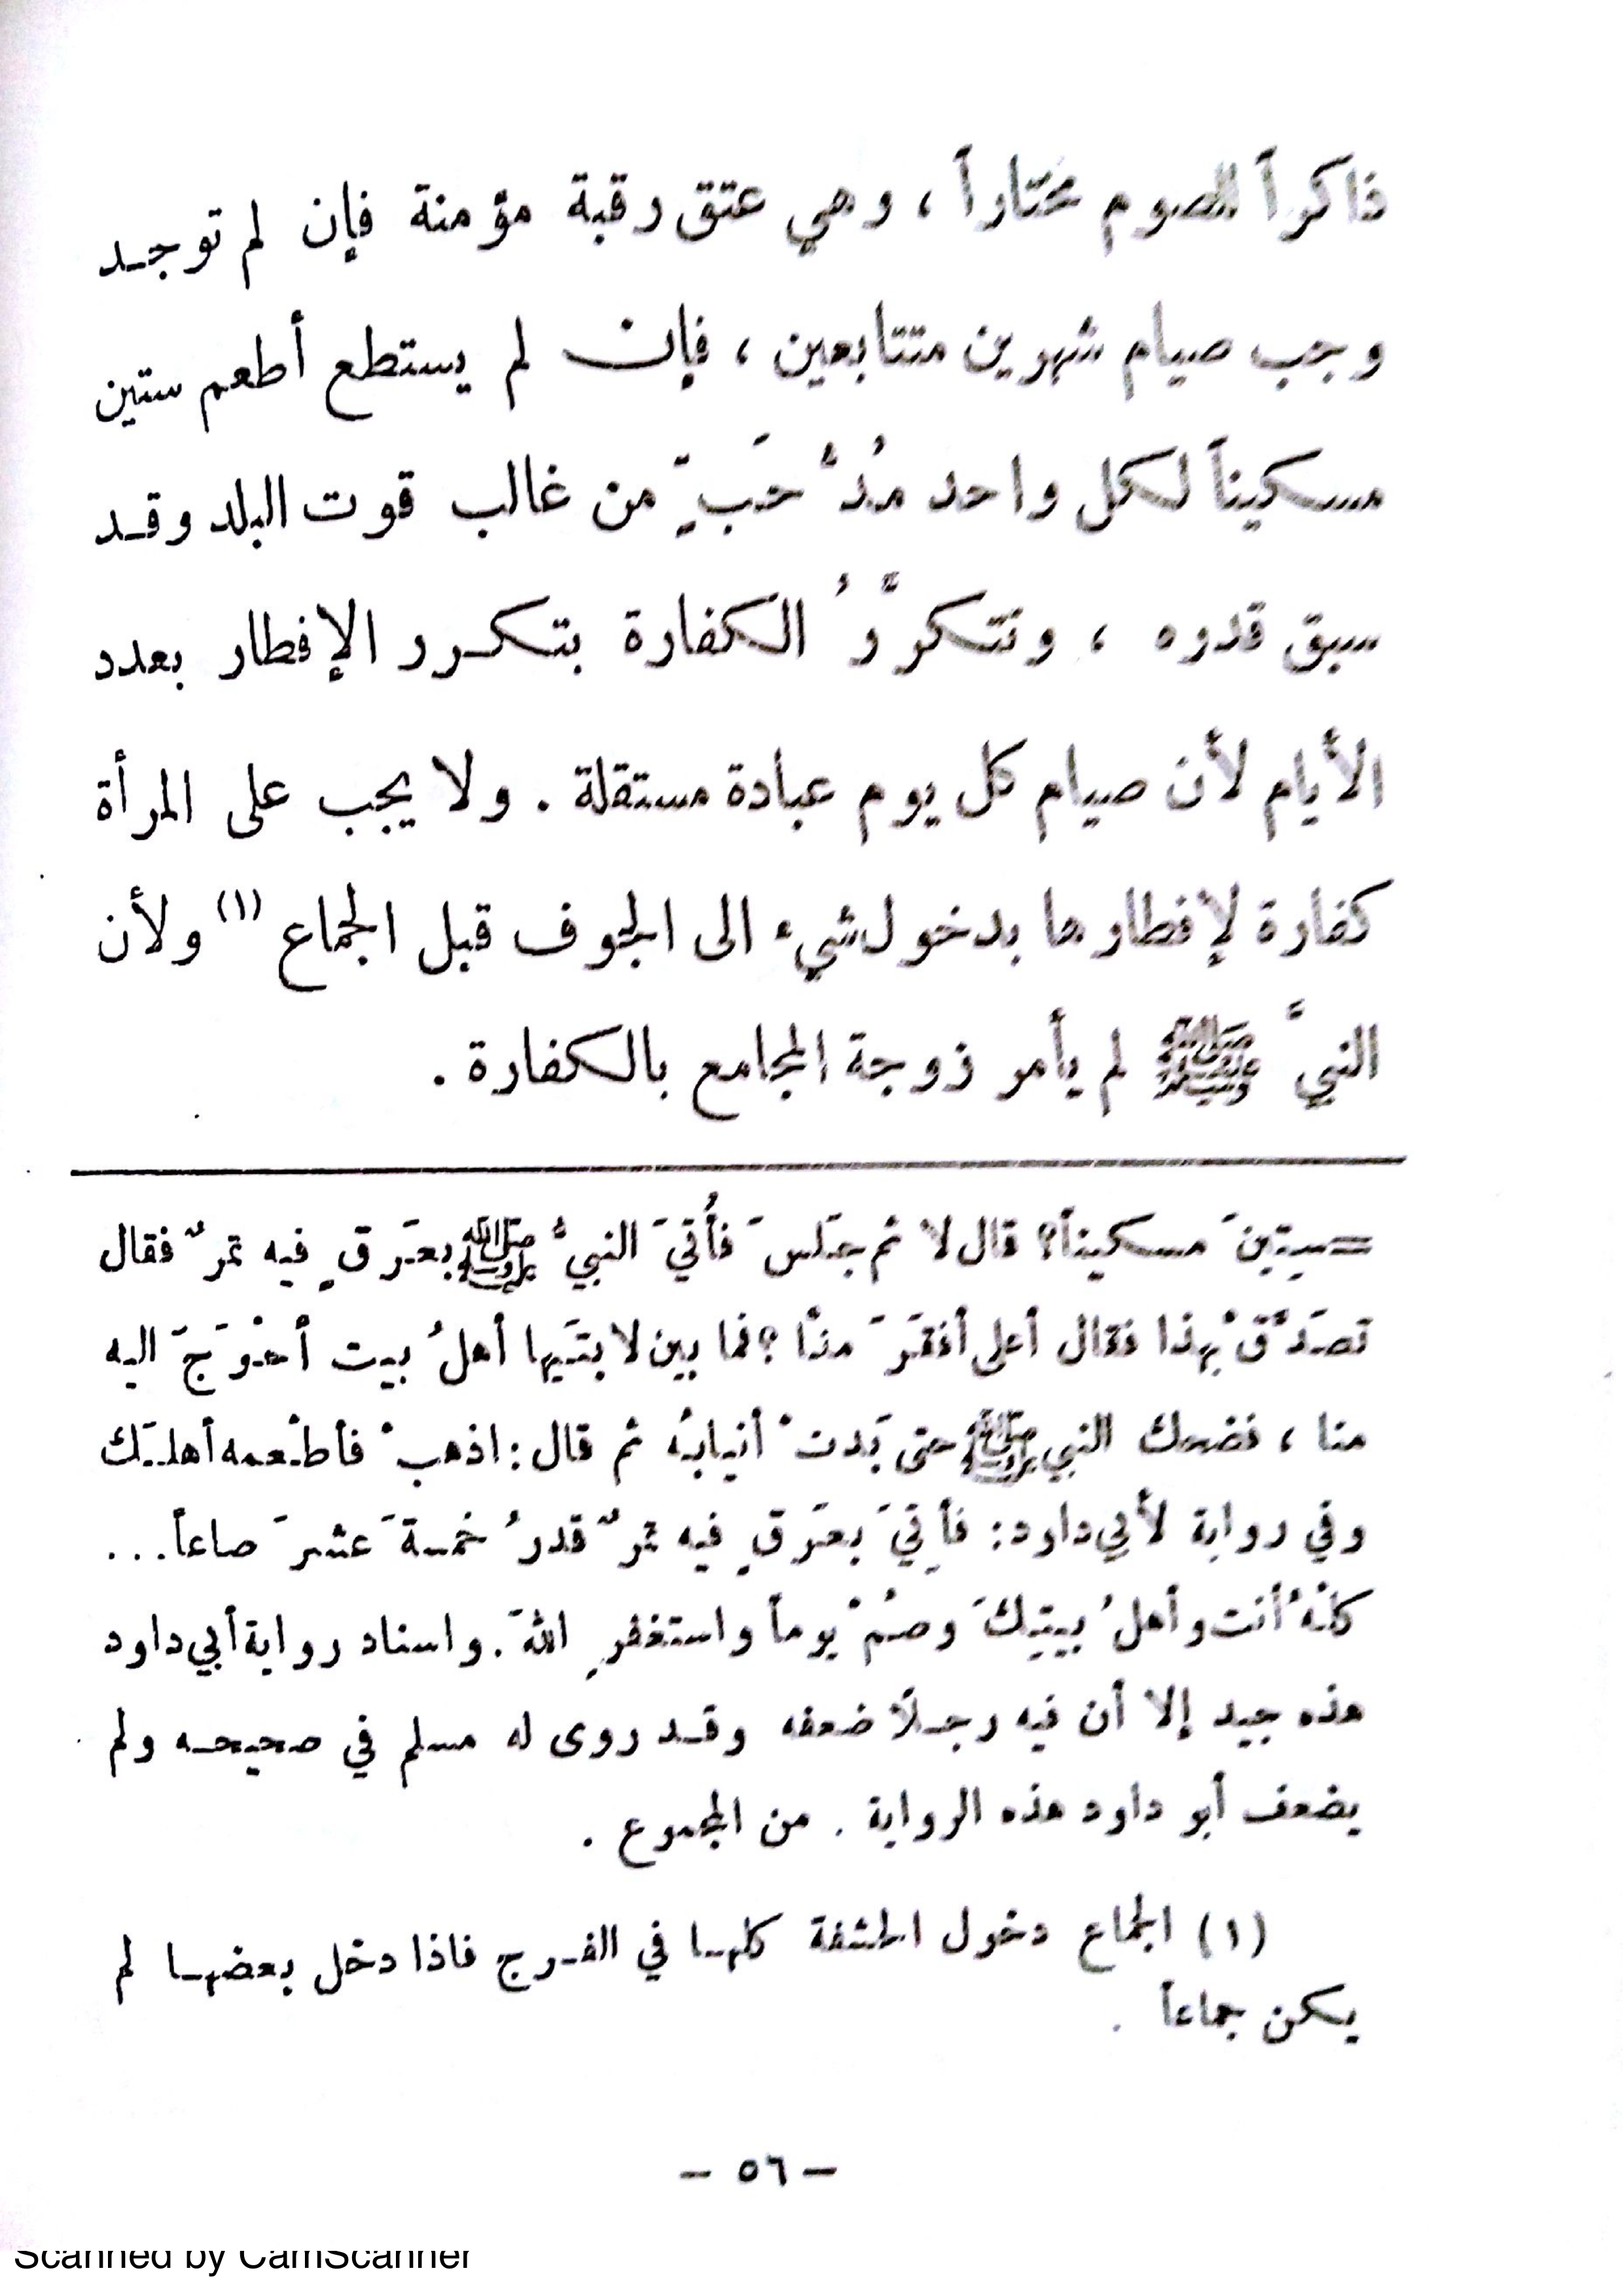 ذاكراً للصوم مختاراً ، وهي عتق رقبة مؤمنة فإن لم توجـد
وجب صيام شهرين متتابعين ، فإن لم يستطع أطعم ستين
مسكيناً لكل واحد مُدُّ حَبٍّ من غالب قوت البلد وقـد
سبق قدره ، وتتكرَّرُ الكفارة بتكـرر الإفطار بعدد
الأيام لأن صيام كل يوم عبادة مستقلة . ولا يجب على المرأة
كفارة لإفطارها بدخول شيء الى الجوف قبل الجماع (١) ولأن
النبيَّ ﷺ لم يأمر زوجة المجامع بالكفارة .
=ستِينَ مسكيناً؟ قال لا ثم جَلسَ فأُتيَ النبيُّ ﷺ بعَرقٍ فيه تمرٌ فقال
تصَدَّقْ بهذا فقال أعلى أفقَرَ منّا ؟ فما بين لابتَيها أهلُ بيت أحْوَجَ اليه
منا ، فضحك النبي ﷺ حتى بَدتْ أنيابُه ثم قال : اذهبْ فأطْعمه أهلـَك
وفي رواية لأبي داود : فأُتيَ بعَرقٍ فيه تمرٌ قدرُ خمسةَ عشرَ صاعاً ...
كلْهُ أنت وأهلُ بيتِكَ وصُمْ يوماً واستغفرِ اللهَ . واسناد رواية أبي داود
هذه جيد إلا أن فيه رجـلاً ضعفه وقـد روى له مسلم في صحيحـه ولم
يضعف أبو داود هذه الرواية . من المجموع .
(١) الجماع دخول الحشفة كلهـا في الفـرج فاذا دخل بعضهـا لم
يكن جماعاً .
– ٥٦ –
Scanned by CamScanner